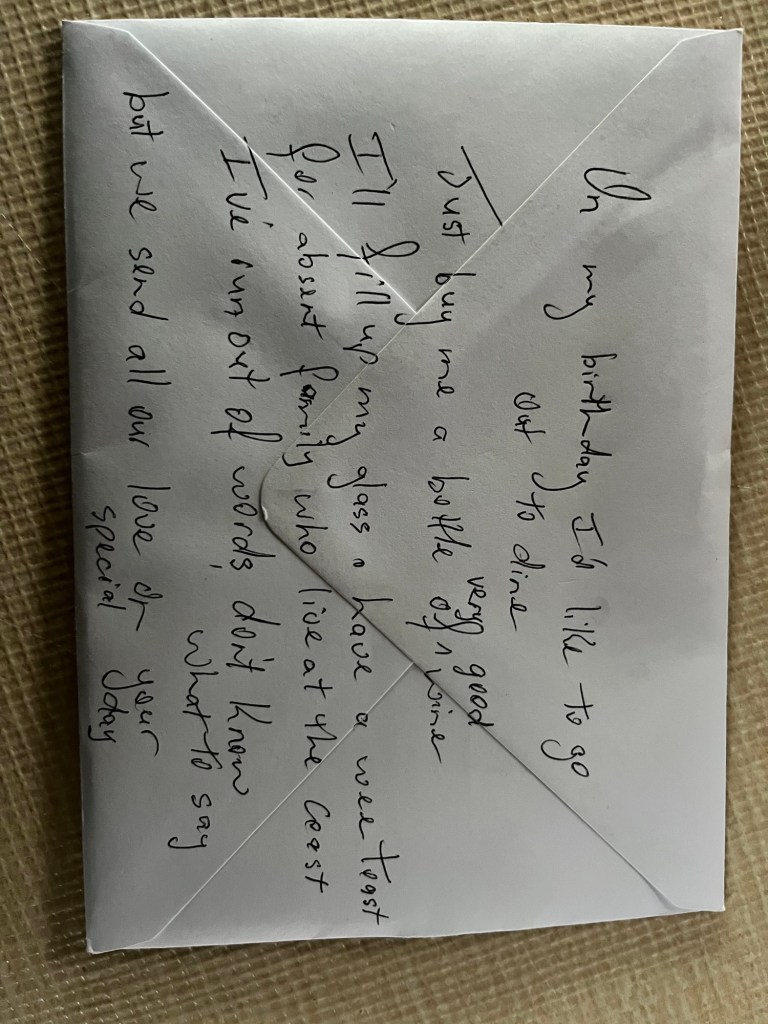 On my birthday I'd like to go
out to dine
Just buy me a bottle of very good wine
I'll fill up my glass & have a wee toast
for absent family who live at the coast
I've run out of words, don't know
what to say
but we send all our love on your
special day